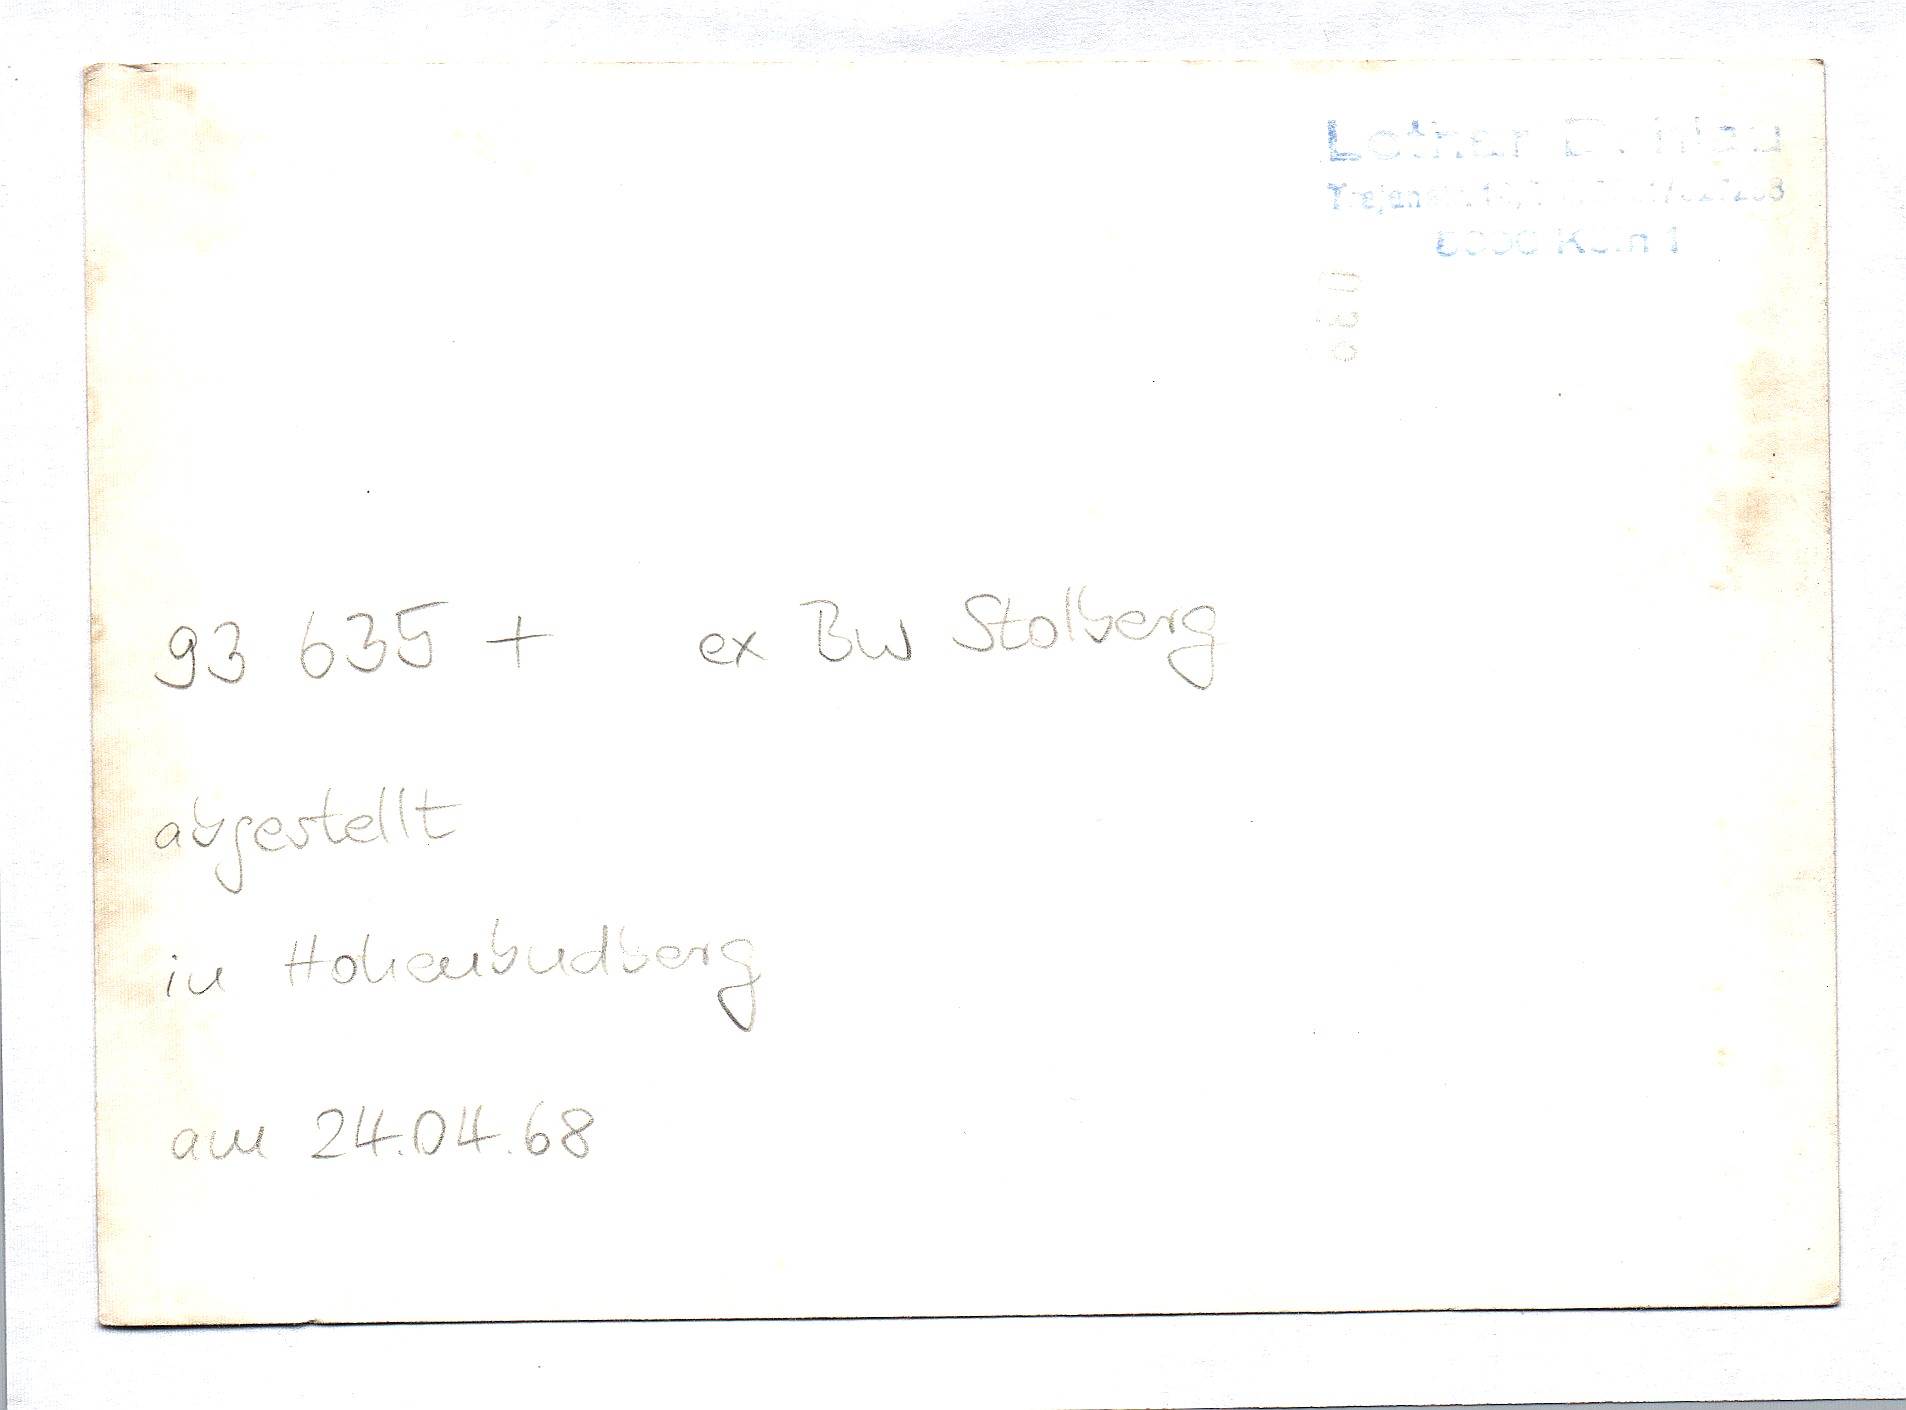 Lothar
5000 Köln 1
93 635 + ex Bw Stolberg
abgestellt
in Hohenbudberg
am 24.04.68